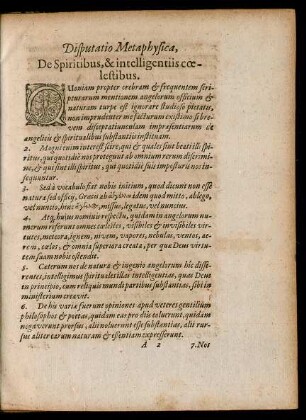 Disputatio Metaphysica,
De Spiritibus, & intelligentiis cœ-
lestibus.
QVoniam propter crebram & frequentem scri-
pturarum mentionem angelorum officium &
naturam turpe est ignorare studioso pietatis,
non imprudenter me facturum existimo si bre-
vem disceptatiunculam in præsentiarum de
angelicis & spiritualibus substantiis instituam.
2. Magni enim interest scire, qui & quales sint beati illi spi-
ritus, qui quotidie nos protegunt ab omnium rerum discrimi-
ne, & qui sint illi spiritus, qui quotidie suis imposturis nos in-
sequuntur.
3. Sed à vocabulo fiat nobis initium, quod dicunt non esse
naturæ sed officii, Græcis ab idem quod mitto, ablego,
vel nuntio, hinc missus, legatus, vel nuntius.
4. Atq, hujus nominis respectu, quidam in angelorum nu-
merum referunt omnes cœlestes, visibiles & invisibiles vir-
tutes, meteora, ignem, nivem, vapores, nebulas, ventos, ae-
rem, cœlos, & omnia superata creata, per quæ Deus virtu-
tem suam nobis ostendit.
5. Cæterum nos de natura & ingenio angelorum hic disse-
rentes, intelligimus spirituales illas intelligentias, quas Deus
in principio, cum reliquis mundi partibus substantias, sibi in
ministerium creavit.
6. De his variæ fuerunt opiniones apud veteres gentilium
philosophos & poetas, quidam eas pro diis coluerunt, quidam
negaverunt prorsus, alii noluerunt esse substantias, alii rur-
sus aliter earum naturam & essentiam expresserunt.
A 2 7. Nos